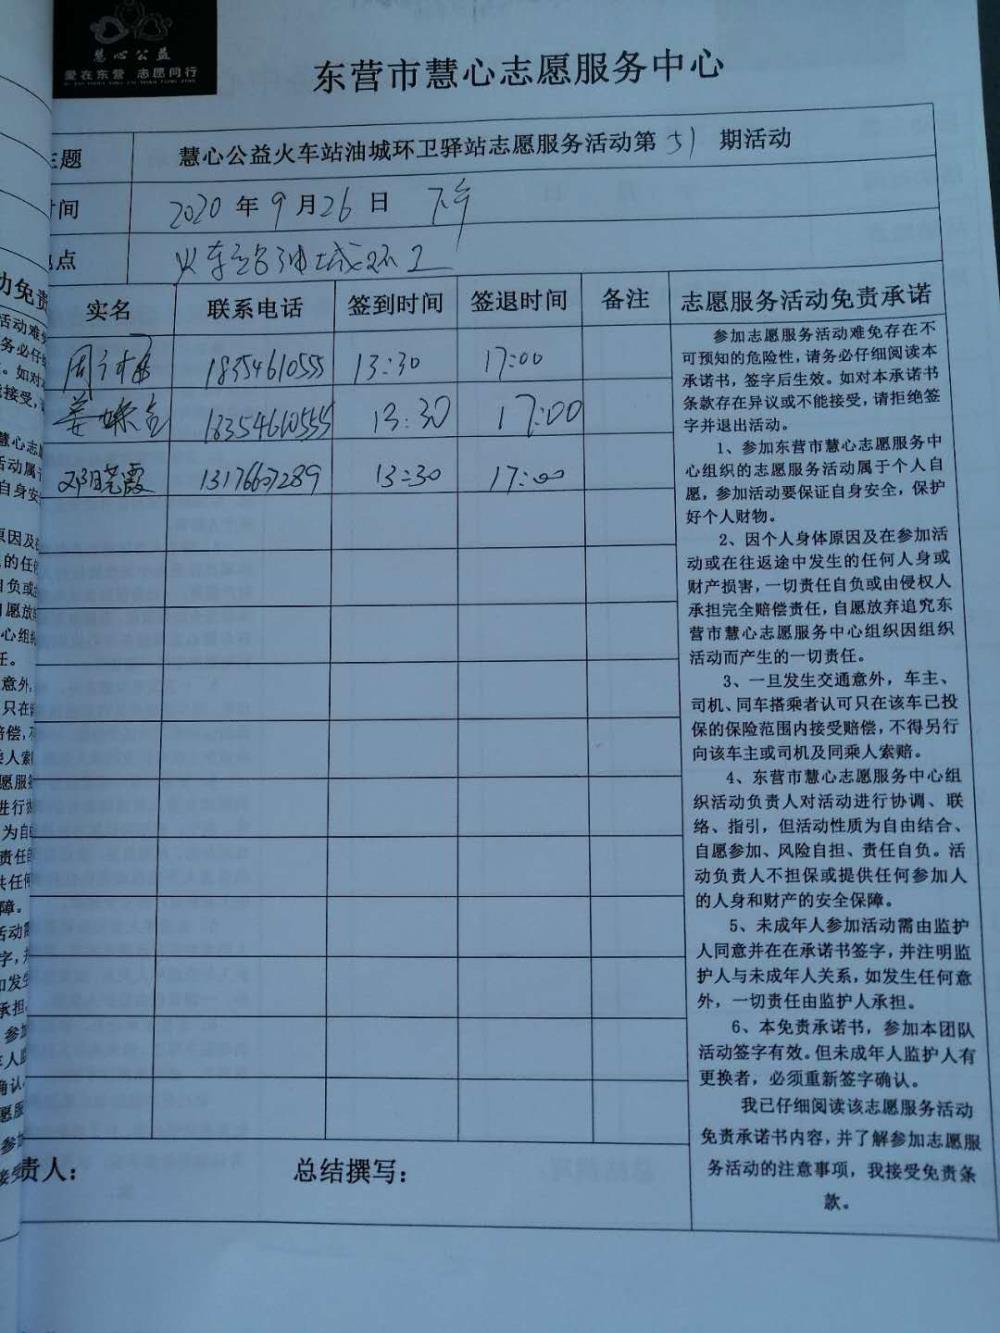 慧心公益
爱在东营 志愿同行
东营市慧心志愿服务中心
主题 慧心公益火车站油城环卫驿站志愿服务活动第 31 期活动
时间 2020 年 9 月 26 日 下午
地点 火车站油城环卫
实名 联系电话 签到时间 签退时间 备注 志愿服务活动免责承诺
18354610555 13:30 17:00
18354610555 13:30 17:00
邓晓霞 13176607289 13:30 17:00
参加志愿服务活动难免存在不
可预知的危险性，请务必仔细阅读本
承诺书，签字后生效。如对本承诺书
条款存在异议或不能接受，请拒绝签
字并退出活动。
1、参加东营市慧心志愿服务中
心组织的志愿服务活动属于个人自
愿，参加活动要保证自身安全，保护
好个人财物。
2、因个人身体原因及在参加活
动或在往返途中发生的任何人身或
财产损害，一切责任自负或由侵权人
承担完全赔偿责任，自愿放弃追究东
营市慧心志愿服务中心组织因组织
活动而产生的一切责任。
3、一旦发生交通意外，车主、
司机、同车搭乘者认可只在该车已投
保的保险范围内接受赔偿，不得另行
向该车主或司机及同乘人索赔。
4、东营市慧心志愿服务中心组
织活动负责人对活动进行协调、联
络、指引，但活动性质为自由结合、
自愿参加、风险自担、责任自负。活
动负责人不担保或提供任何参加人
的人身和财产的安全保障。
5、未成年人参加活动需由监护
人同意并在在承诺书签字，并注明监
护人与未成年人关系，如发生任何意
外，一切责任由监护人承担。
6、本免责承诺书，参加本团队
活动签字有效。但未成年人监护人有
更换者，必须重新签字确认。
我已仔细阅读该志愿服务活动
免责承诺书内容，并了解参加志愿服
务活动的注意事项，我接受免责条
款。
责人： 总结撰写：